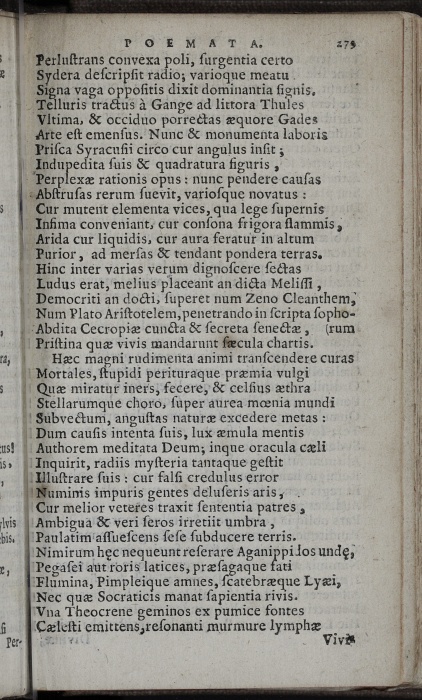 POEMATA. 275
Perluſtrans convexa poli, ſurgentia certo
Sydera deſcripſit radio; varioque meatu
Signa vaga oppoſitis dixit dominantia ſignis.
Telluris tractus à Gange ad littora Thules
Vltima, & occiduo porrectas æquore Gades
Arte eſt emenſus. Nunc & monumenta laboris
Priſca Syracuſii circo cur angulus inſit;
Indupedita ſuis & quadratura figuris,
Perplexæ rationis opus: nunc pendere cauſas
Abſtruſas rerum ſuevit, varioſque novatus:
Cur mutent elementa vices, qua lege ſupernis
Infima conveniant, cur conſona frigora flammis,
Arida cur liquidis, cur aura feratur in altum
Purior, ad merſas & tendant pondera terras.
Hinc inter varias verum dignoſcere ſectas
Ludus erat, melius placeant an dicta Meliſſi,
Democriti an docti, ſuperet num Zeno Cleanthem,
Num Plato Ariſtotelem, penetrando in ſcripta ſopho-
Abdita Cecropiæ cuncta & ſecreta ſenectæ, (rum
Priſtina quæ vivis mandarunt ſæcula chartis.
Hæc magni rudimenta animi tranſcendere curas
Mortales, ſtupidi perituraque præmia vulgi
Quæ miratur iners, fecere, & celſius æthra
Stellarumque choro, ſuper aurea mœnia mundi
Subvectum, anguſtas naturæ excedere metas:
Dum cauſis intenta ſuis, lux æmula mentis
Authorem meditata Deum; inque oracula cæli
Inquirit, radiis myſteria tantaque geſtit
Illuſtrare ſuis: cur falſi credulus error
Numinis impuris gentes deluſeris aris,
Cur melior veteres traxit ſententia patres,
Ambigua & veri ſeros irretiit umbra,
Paulatim aſſueſcens ſeſe ſubducere terris.
Nimirum hęc nequeunt reſerare Aganippidos undę,
Pegaſei aut roris latices, præſagaque fati
Flumina, Pimpleique amnes, ſcatebræque Lyæi,
Nec quæ Socraticis manat ſapientia rivis.
Vna Theocrene geminos ex pumice fontes
Cæleſti emittens, reſonanti murmure lymphæ
Vivæ